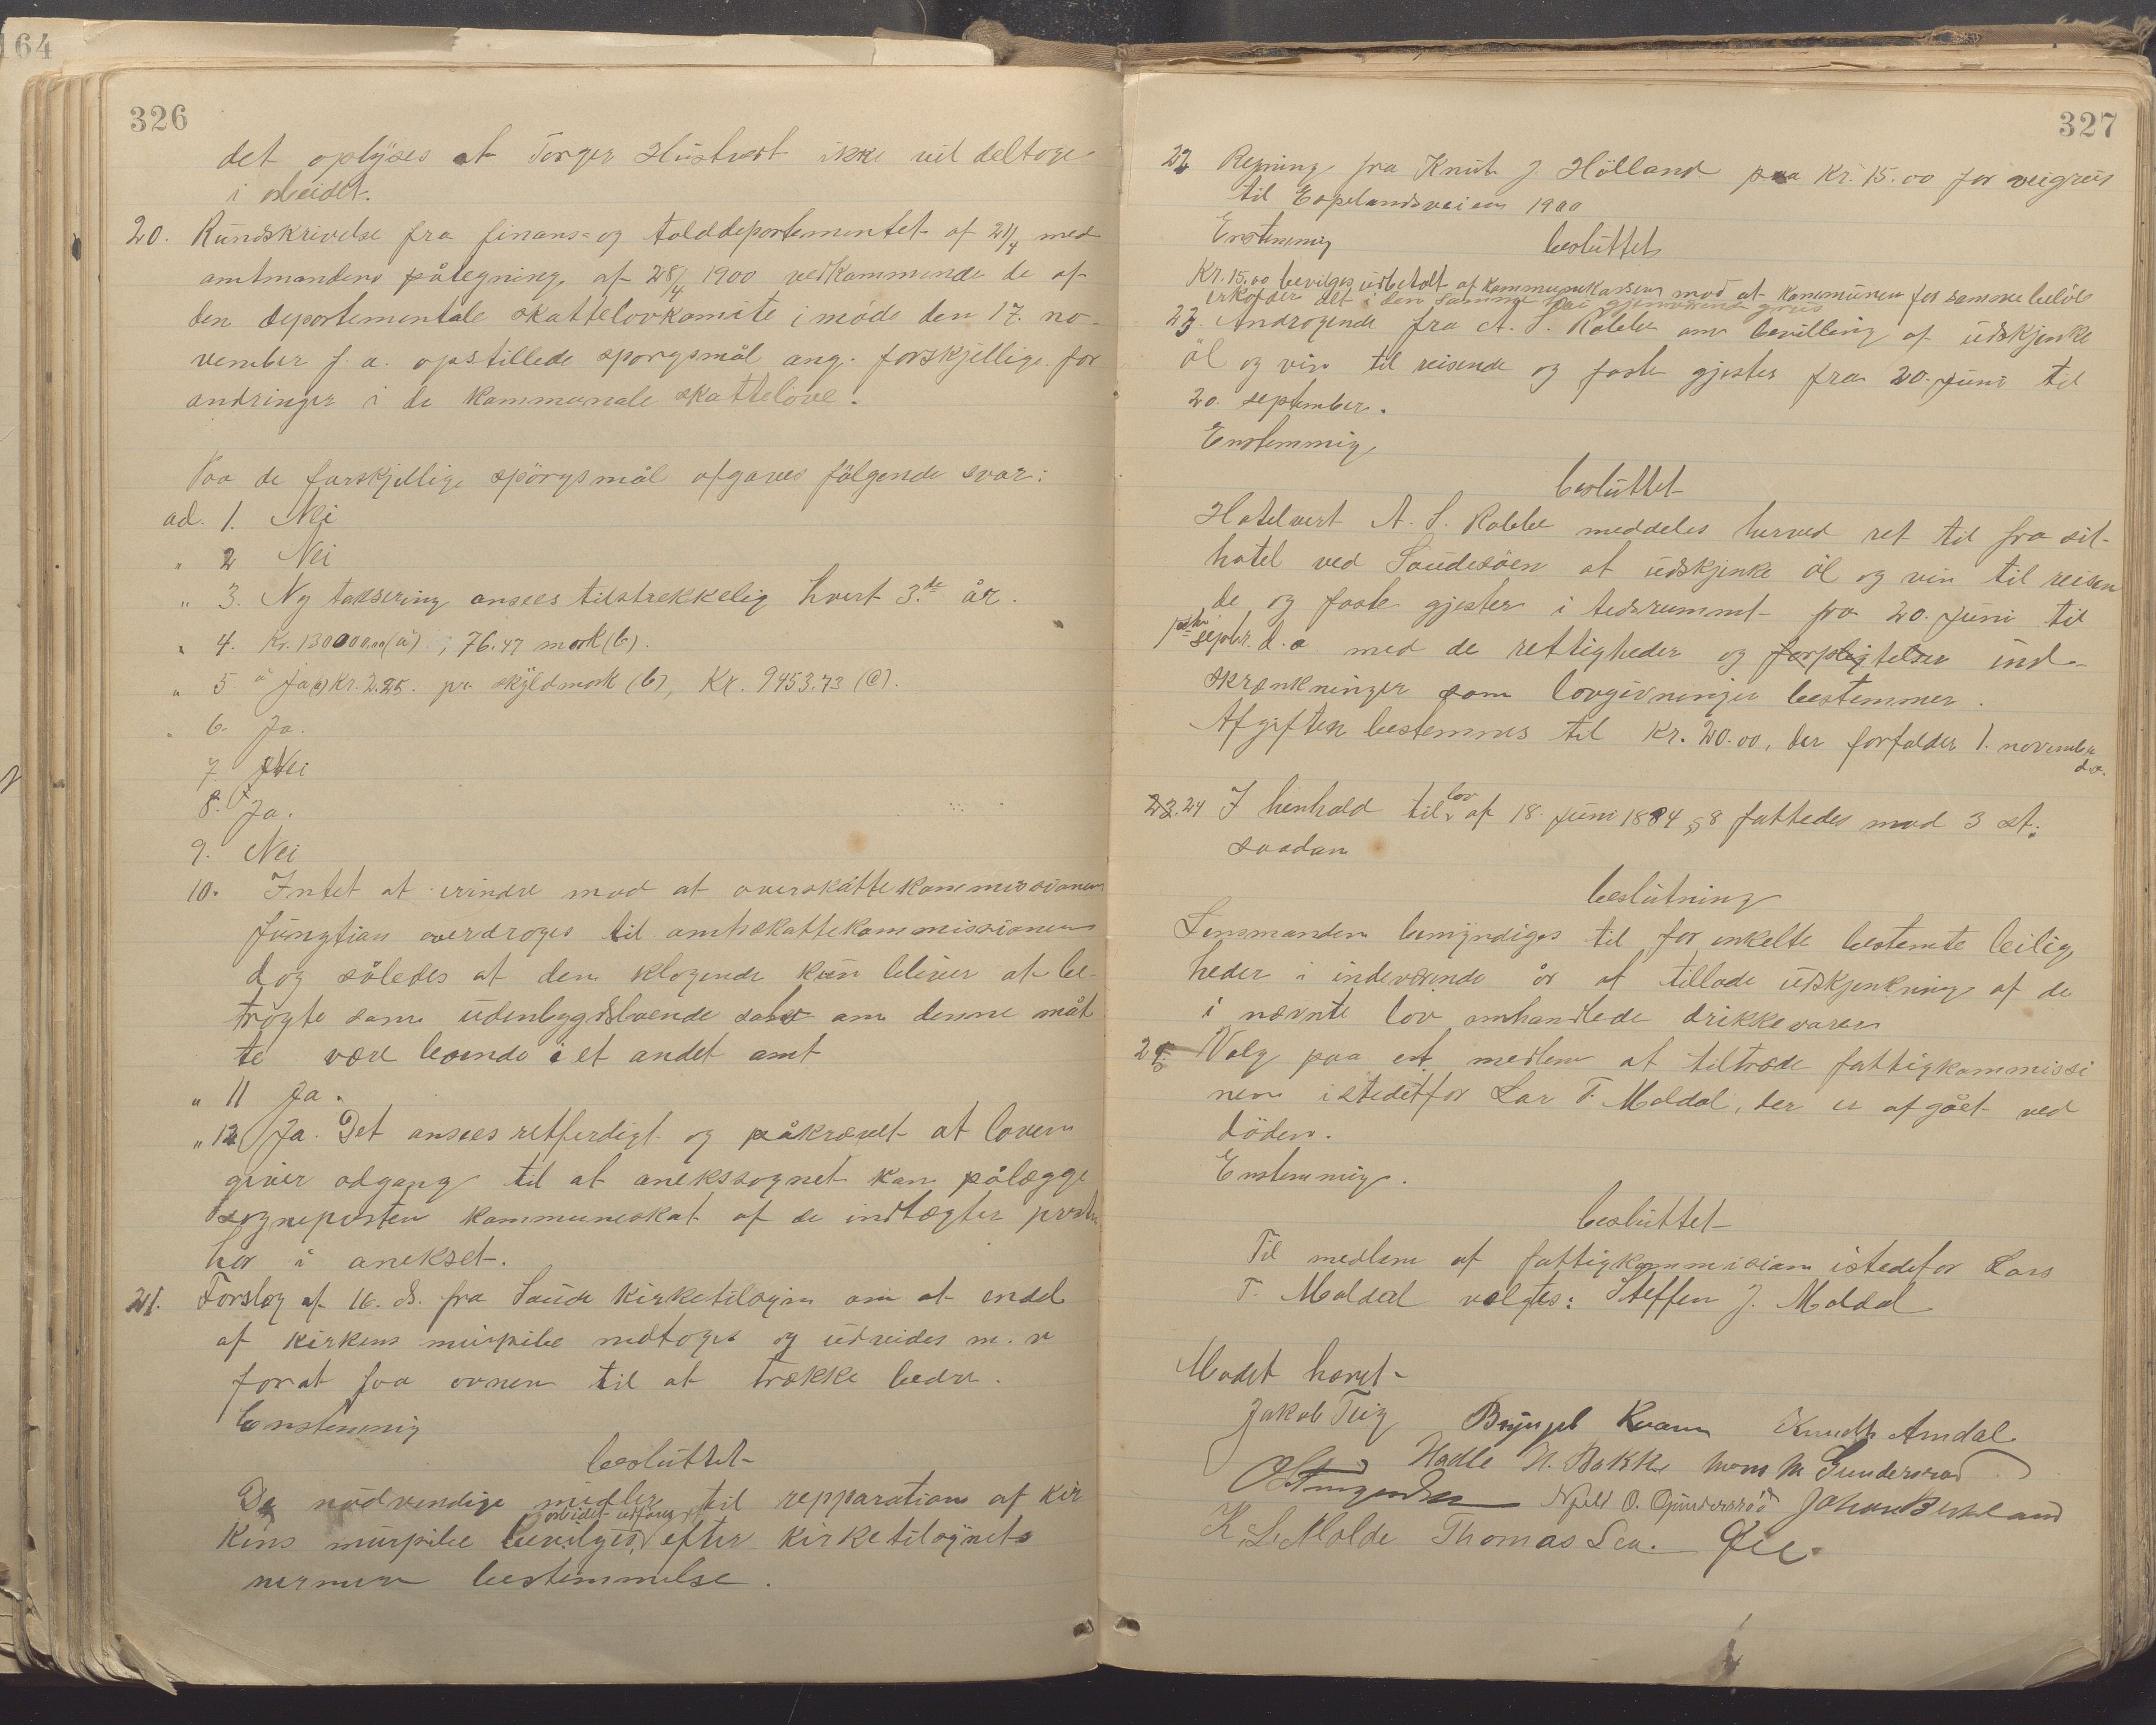 64
326
det oplyses at Torger Hustvet ikke vil deltage
i arbeidet.
20. Rundskrivelse fra finans- og tolddepartementet af 21/4 med
amtmandens påtegning af 28/4 1900 vedkommende de af
den departementale skattelovkomite i møde den 17. no-
vember f. a. opstillede sporgsmål ang. forskjellige for
andringer i de kommunale skattelove.
Paa de forskjellige spörgsmål afgaves fölgende svar:
ad. 1. Nei
" 2 Nei
" 3. Ny taksering ansees tilstrekkelig hvert 3.de år.
" 4. Kr. 130000.00 (a), 76.47 mark (b).
" 5 Ja (a) Kr. 2.25. pr. skyldmark (b), Kr. 9453.73 (c).
" 6. Ja.
7. Nei
8. Ja.
9. Nei
10. Intet at erindre mod at overskattekommissionens
fungtion overdroges til amtskattekommissionen
dog således at den klagende kun bliver at be-
tragte som udenbygdsboende selv om denne måt
te være boende i et andet amt
" 11 Ja.
" 12 Ja. Det ansees retferdigt og påkrævet at loven
giver adgang til at anekssognet kan pålægge
sogneprsten kommuneskat af de indtægter prsten
har i anekset.
21. Forslag af 16. ds. fra Saude kirketilsyn om at endel
af kirkens murpibe nedtoges og udvides m. v
forat faa ovnen til at trække bedre.
Enstemmig
besluttet
De nødvendige midler til repparation af kir
arbeidet udføres
kens murpibe bevilges, efter kirketilsynets
nermere bestemmelse.
327
22 Regning fra Knut J. Hölland paa Kr. 15.00 for veigrus
til Espelandsveien 1900
Enstemmig
besluttet
Kr. 15.00 bevilges udbetalt af kommunekassen mod at kommunen for samme beløb
erholder det i den samme gjenværende grus
23. Andragende fra A. S. Rabbe om bevilling af udskjenke
öl og vin til reisende og faste gjester fra 20. Juni til
20. september.
Enstemmig
besluttet
Hotelvert A. S. Rabbe meddeles herved ret til fra sit
hotel ved Saudesöen at udskjenke öl og vin til reisen
de og faste gjester i tidsrummet fra 20. Juni til
septbr. d. a med de rettigheder og forpligtelser ind-
skrænkninger som lovgivningen bestemmer.
Afgiften bestemmes til Kr. 20.00, der forfalder 1. november
d. a.
23. 24 I henhold til lov af 18. Juni 1884 § 8 fattedes mod 3 st.
saadan
beslutning
Lensmanden bemyndiges til for enkelte bestemte leilig
heder i indeværende år at tillade udskjenkning af de
i nævnte lov omhandlede drikkevarer
25. Valg paa et medlem at tiltræde fattigkommissi
nen istedetfor Lar T. Maldal, der er afgået ved
döden.
Enstemmig.
besluttet
Til medlem af fattigkommision istedetfor Lars
T. Maldal valgtes: Steffen J. Maldal
Mødet hævet
Jakob Tiig Brynjel Kvam Knudt Amdal
Hadle N. Bakke Mons M. Gundersrød
Njell O. Gundersröd Johan Birkeland
K. L. Molde Thomas Lea.